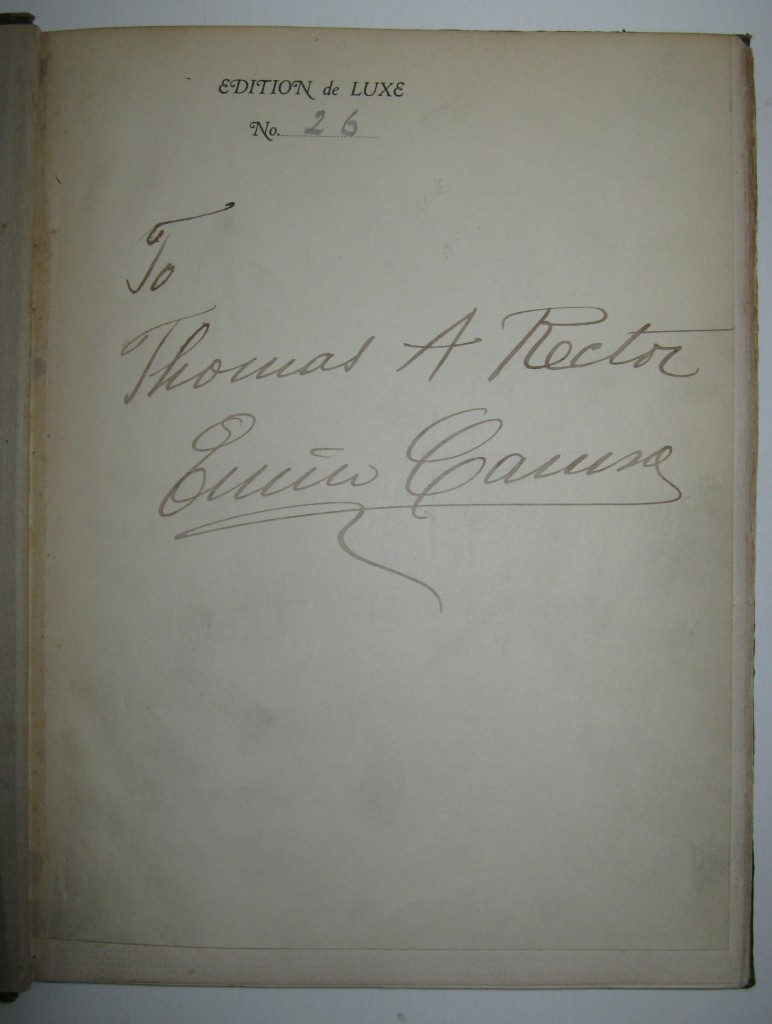 EDITION de LUXE
No. 26
To
Thomas A Rector
Enrico Caruso